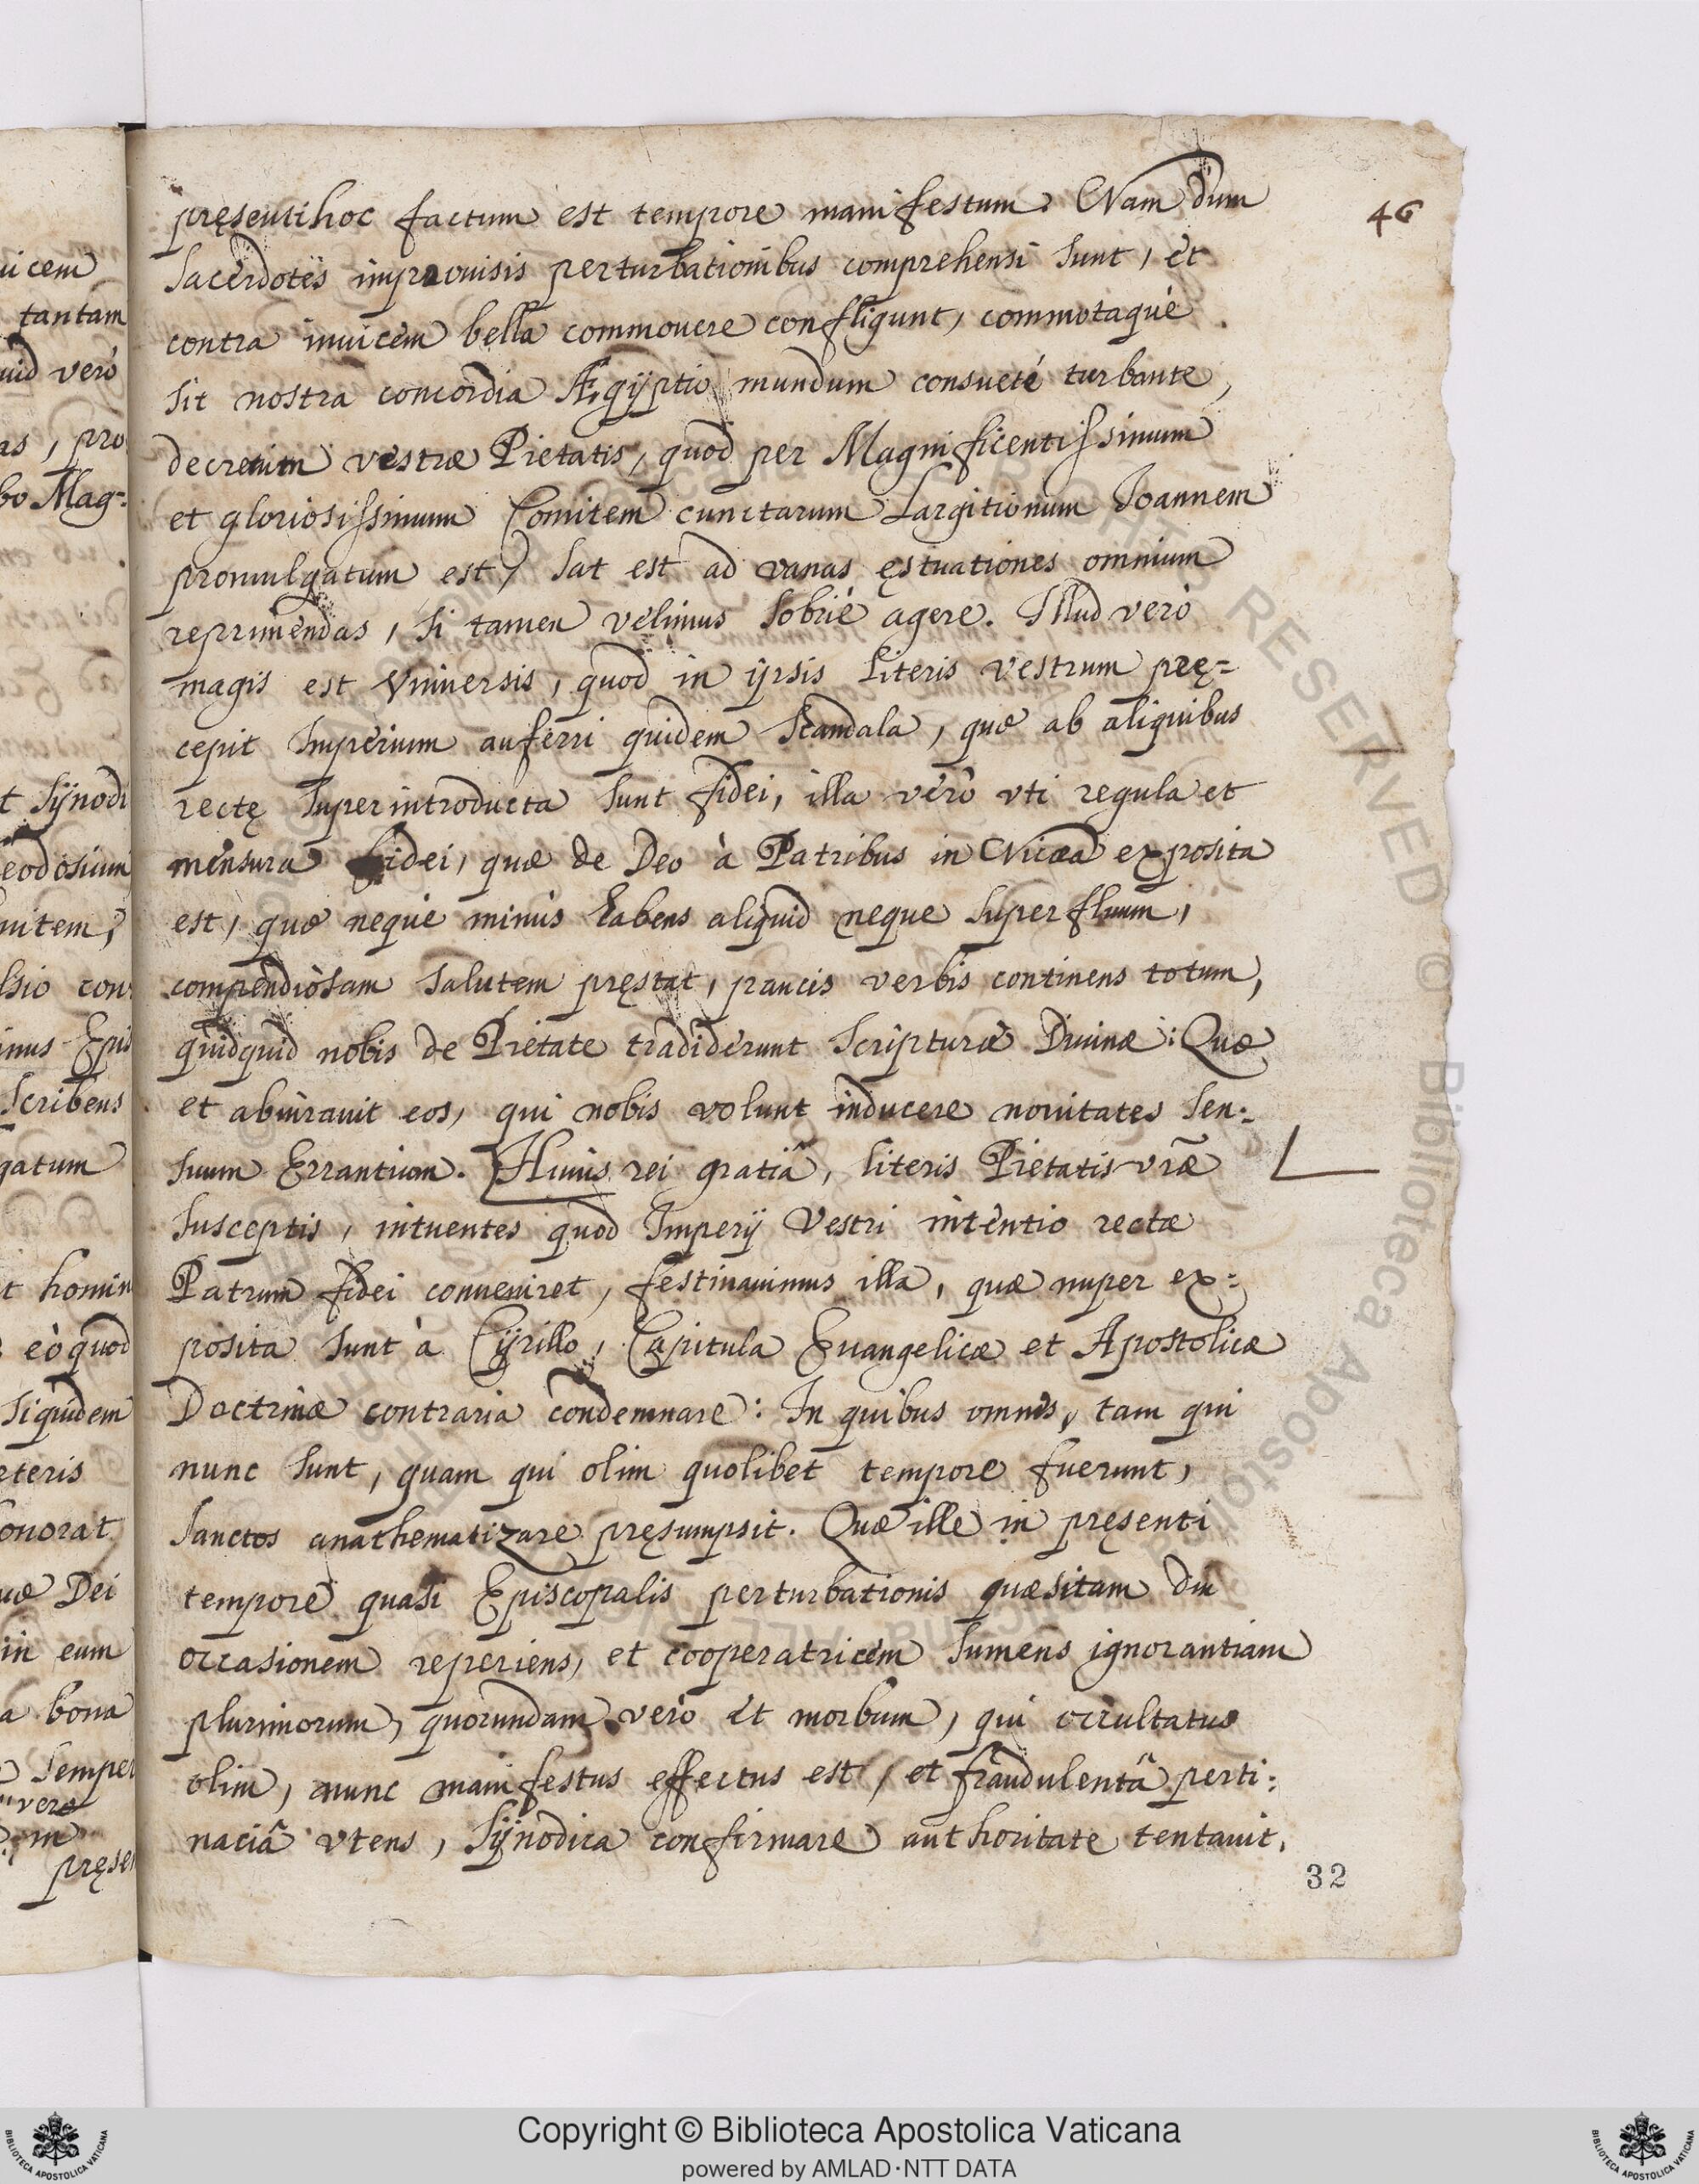 46
pręsenti hoc factum est tempore manifestum. Nam dum
Sacerdotes improuisis perturbationibus comprehensi sunt, et
contra inuicem bella commouere confligunt, commotaque
sit nostra concordia Ægÿptio mundum consueté turbante,
decretum vestræ Pietatis, quod per Magnificentissimum
et gloriosissimum Comitem cunctarum Largitionum Ioannem
promulgatum est, sat est ad vanas ęstuationes omnium
reprimendas, si tamen velimus sobrié agere. Illud verò
magis est Vniuersis, quod in ijsis literis vestrum prę=
cepit Imperium auferri quidem Scandala, quæ ab aliquibus
rectę superintroducta sunt fidei, illa verò vti regula et
mensura fidei, quæ de Deo à Patribus in Nicæa exposita
est, quæ neque minus habens aliquid neque superfluum,
compendiòsam salutem pręstat, paucis verbis continens totum,
quidquid nobis de Pietate tradiderunt Scripturæ Diuinæ: Quæ
et abiurauit eos, qui nobis volunt inducere nouitates sen=
suum Errantium. Huius rei gratiâ, literis Pietatis vr̃æ
susceptis, intuentes quod Imperij Vestri intentio rectæ
Patrum fidei conueniret, festinauimus illa, quæ nuper ex=
posita sunt à Cÿrillo, Capitula Euangelicæ et Apostolicæ
Doctrinæ contraria condemnare: In quibus omnes, tam qui
nunc sunt, quam qui olim quolibet tempore fuerunt,
Sanctos anathematizare pręsumpsit. Quæ ille in pręsenti
tempore quasi Episcopalis perturbationis quæsitam diu
occasionem reperiens, et cooperatricem sumens ignorantiam
plurimorum, quorundam verò et morbum, qui occultatus
olim, nunc manifestus effectus est, et fraudulentâ perti=
naciâ vtens, Sÿnodica confirmare authoritate tentauit,
32
Copyright © Biblioteca Apostolica Vaticana
powered by AMLAD·NTT DATA